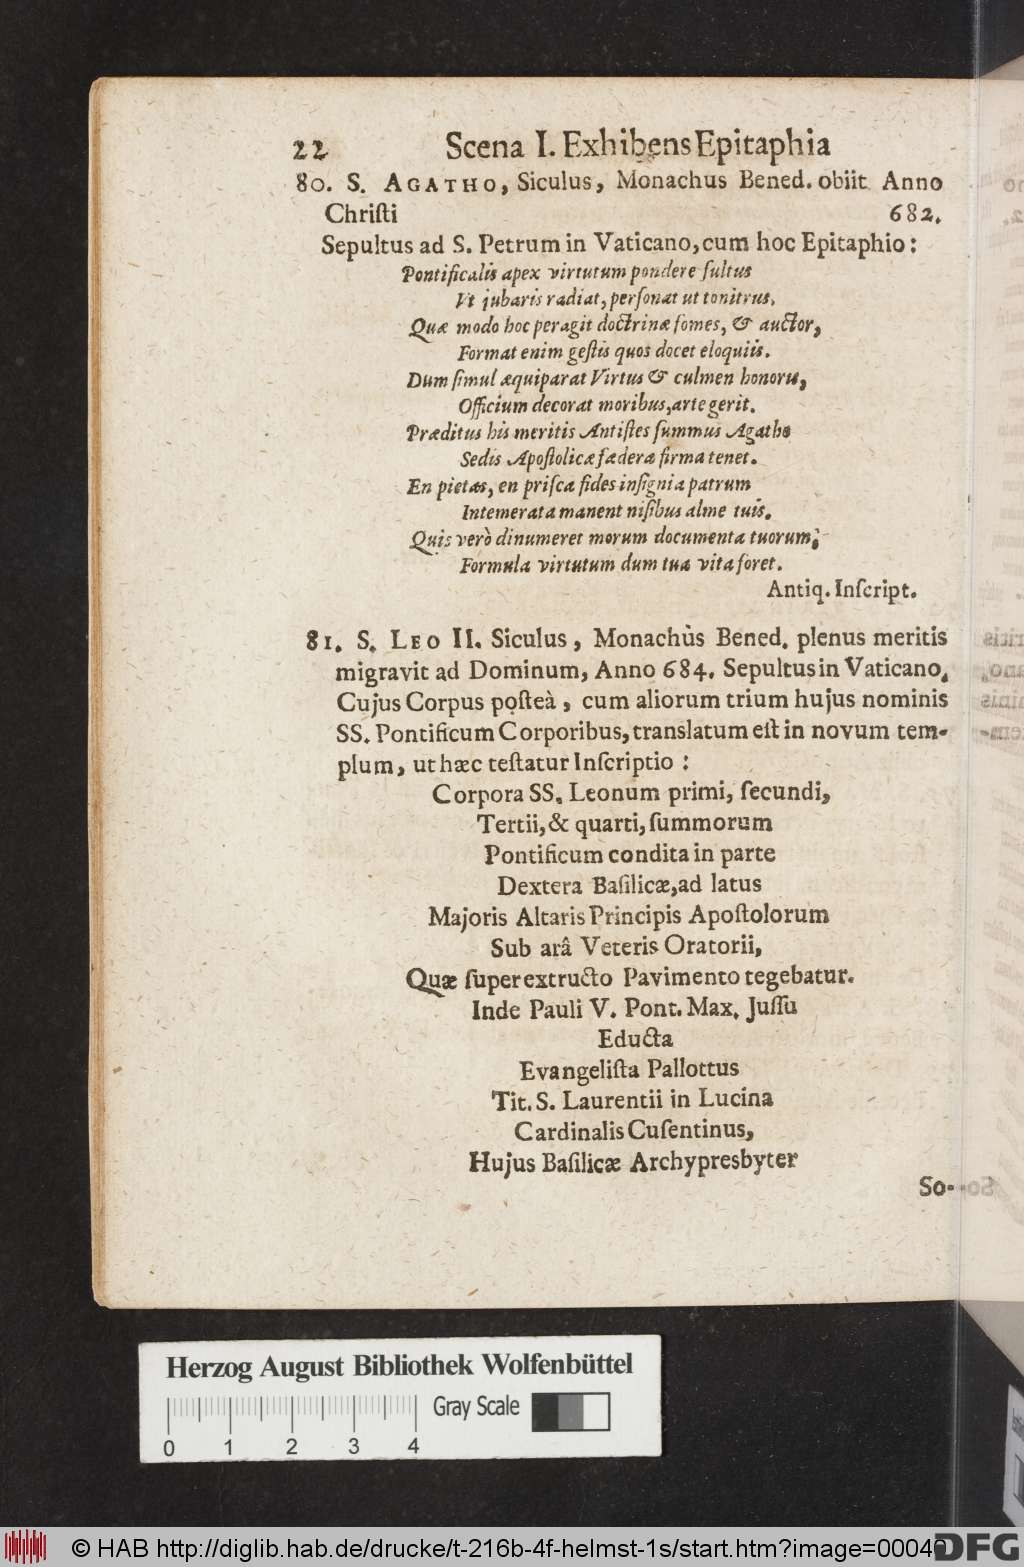 22 Scena I. Exhibens Epitaphia
80. S. AGATHO, Siculus, Monachus Bened. obiit Anno
Chriſti 682.
Sepultus ad S. Petrum in Vaticano, cum hoc Epitaphio:
Pontificalis apex virtutum pondere fultus
Vt jubaris radiat, perſonat ut tonitrus.
Quæ modo hoc peragit doctrinæ fomes, & auctor,
Format enim geſtis quos docet eloquiis.
Dum ſimul æquiparat Virtus & culmen honoris,
Officium decorat moribus, arte gerit.
Præditus his meritis Antiſtes ſummus Agatho
Sedis Apoſtolicæ fædera firma tenet.
En pietas, en priſca fides inſignia patrum
Intemerata manent niſibus alme tuis.
Quis verò dinumeret morum documenta tuorum;
Formula virtutum dum tua vita foret.
Antiq. Inſcript.
81. S. LEO II. Siculus, Monachùs Bened. plenus meritis
migravit ad Dominum, Anno 684. Sepultus in Vaticano.
Cujus Corpus poſteà, cum aliorum trium hujus nominis
SS. Pontificum Corporibus, translatum eſt in novum tem-
plum, ut hæc teſtatur Inſcriptio:
Corpora SS. Leonum primi, ſecundi,
Tertii, & quarti, ſummorum
Pontificum condita in parte
Dextera Baſilicæ, ad latus
Majoris Altaris Principis Apoſtolorum
Sub arâ Veteris Oratorii,
Quæ ſuperextructo Pavimento tegebatur.
Inde Pauli V. Pont. Max. Juſſu
Educta
Evangeliſta Pallottus
Tit. S. Laurentii in Lucina
Cardinalis Cuſentinus,
Hujus Baſilicæ Archypresbyter
So-
Herzog August Bibliothek Wolfenbüttel
Gray Scale
0 1 2 3 4
© HAB http://diglib.hab.de/drucke/t-216b-4f-helmst-1s/start.htm?image=00040
DFG